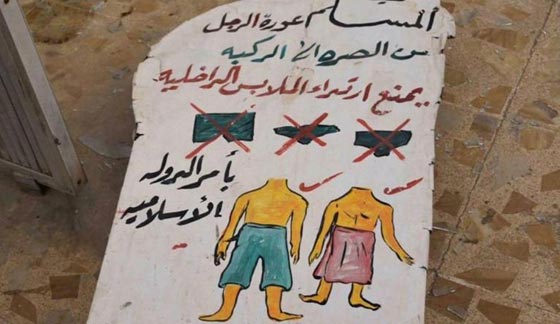 المسلم عورة الرجل
من الصره الا الركبه
يمنع ارتداء الملابس الداخلية
بأمر الدوله
الاسلاميه